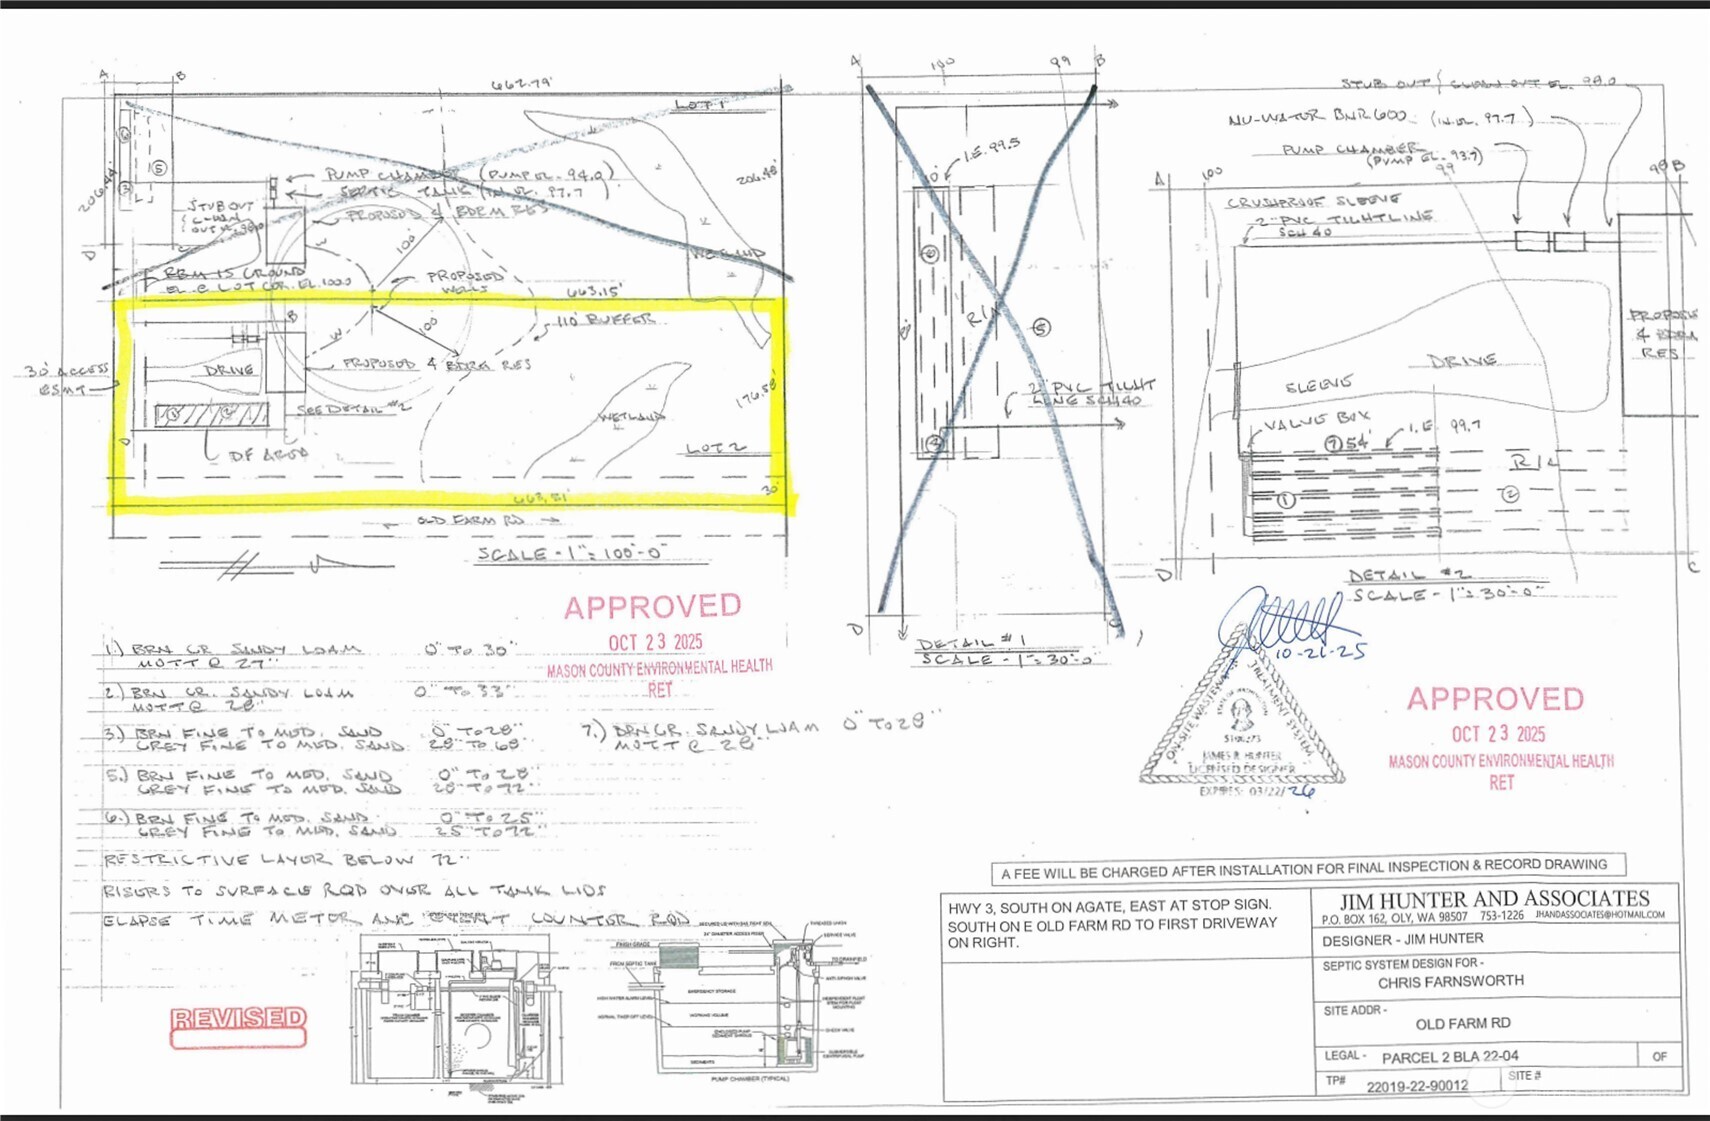 A
B
662.79'
LOT 1
206.48'
PUMP CHAMBER (PUMP EL. 94.0)
SEPTIC TANK (IN. EL. 97.7)
STUB OUT
PROPOSED 4 BDRM RES
100'
WETLAND
D
BBM IS GROUND
EL. @ LOT COR. EL. 100.0
PROPOSED
WELLS
663.15'
B
W
100'
110' BUFFER
30' ACCESS
ESMT
DRIVE
PROPOSED 4 BDRM RES
176.58'
SEE DETAIL #2
WETLAND
DF AREA
LOT 2
30'
OLD FARM RD
SCALE - 1" = 100'-0"
A
100
99
B
I.E. 99.5
10'
6
R/A
5
2" PVC TIGHT
LINE SCH 40
D
DETAIL #1
SCALE - 1" = 30'-0"
STUB OUT / CLEAN OUT EL. 98.0
NU-WATER BNR 600 (IN. EL. 97.7)
PUMP CHAMBER
(PUMP EL. 93.7)
A
100
99
98
B
CRUSHPROOF SLEEVE
2" PVC TIGHTLINE
SCH 40
PROPOSED
4 BDRM
RES
DRIVE
SLEEVE
VALVE BOX
7
54'
I.E. 99.7
R/A
1
2
D
C
DETAIL #2
SCALE - 1" = 30'-0"
APPROVED
OCT 23 2025
MASON COUNTY ENVIRONMENTAL HEALTH
RET
1.) BRN GR SANDY LOAM 0" TO 30"
MOTT @ 27"
2.) BRN GR. SANDY LOAM 0" TO 33"
MOTT @ 28"
3.) BRN FINE TO MED. SAND 0" TO 28"
GREY FINE TO MED. SAND 28" TO 68"
7.) BRN GR. SANDY LOAM 0" TO 28"
MOTT @ 28"
5.) BRN FINE TO MED. SAND 0" TO 28"
GREY FINE TO MED. SAND 28" TO 72"
6.) BRN FINE TO MED. SAND 0" TO 25"
GREY FINE TO MED. SAND 25" TO 72"
RESTRICTIVE LAYER BELOW 72"
RISERS TO SURFACE RQD OVER ALL TANK LIDS
ELAPSE TIME METER AND EVENT COUNTER RQD
10-21-25
ON-SITE WASTEWATER TREATMENT SYSTEM
STATE OF WASHINGTON
5100273
JAMES R. HUNTER
LICENSED DESIGNER
EXPIRES: 03/22/26
APPROVED
OCT 23 2025
MASON COUNTY ENVIRONMENTAL HEALTH
RET
REVISED
24" DIAMETER ACCESS RISER
FINISH GRADE
FROM SEPTIC TANK
TO DRAINFIELD
EMERGENCY STORAGE
HIGH WATER ALARM LEVEL
WORKING VOLUME
CHECK VALVE
SEDIMENTS
PUMP CHAMBER (TYPICAL)
A FEE WILL BE CHARGED AFTER INSTALLATION FOR FINAL INSPECTION & RECORD DRAWING
HWY 3, SOUTH ON AGATE, EAST AT STOP SIGN.
SOUTH ON E OLD FARM RD TO FIRST DRIVEWAY
ON RIGHT.
JIM HUNTER AND ASSOCIATES
P.O. BOX 162, OLY, WA 98507 753-1226 JHANDASSOCIATES@HOTMAIL.COM
DESIGNER - JIM HUNTER
SEPTIC SYSTEM DESIGN FOR -
CHRIS FARNSWORTH
SITE ADDR -
OLD FARM RD
LEGAL - PARCEL 2 BLA 22-04
OF
TP# 22019-22-90012
SITE #